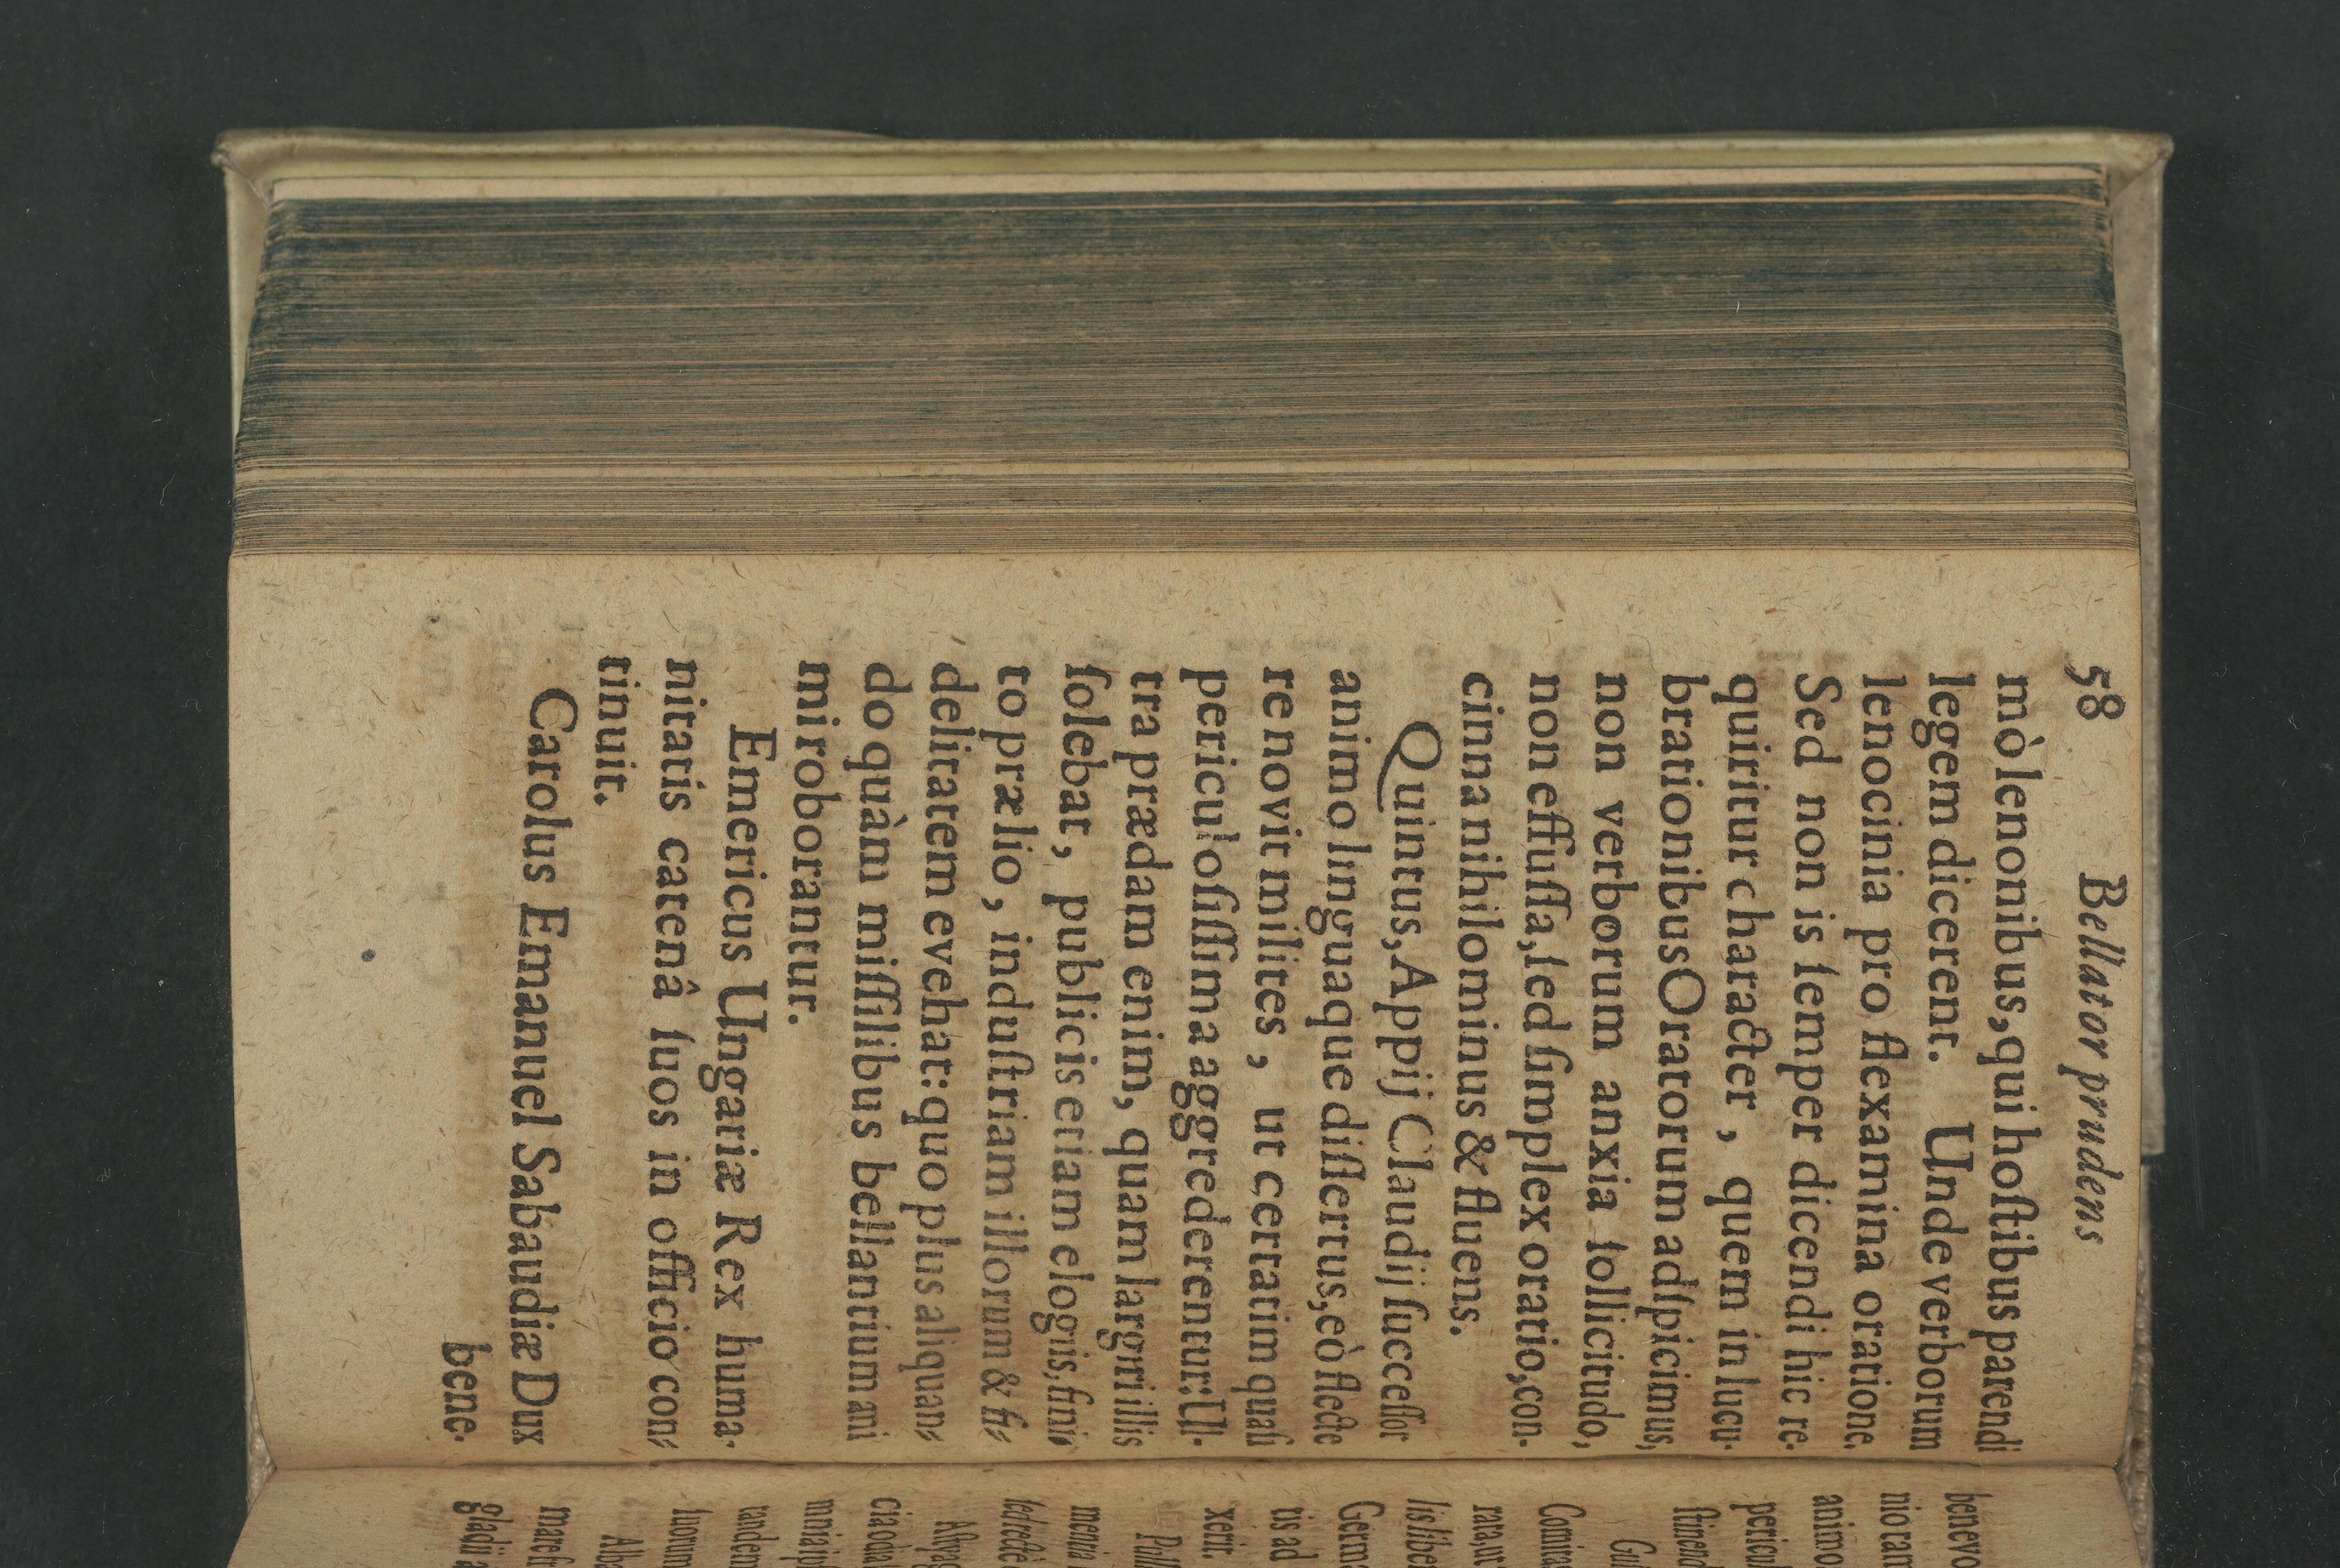 58 Bellator prudens
mò lenonibus, qui hoſtibus parendi
legem dicerent. Unde verborum
lenocinia pro flexamina oratione.
Sed non is ſemper dicendi hic re-
quiritur character, quem in lucu-
brationibus Oratorum adſpicimus,
non verborum anxia ſollicitudo,
non effuſſa, ſed ſimplex oratio, con-
cinna nihilominus & fluens.
Quintus, Appij Claudij ſucceſſor
animo linguaque diſſertus, eò flecte
re novit milites, ut certatim quaſi
periculoſiſſima aggrederentur: Ul-
tra prædam enim, quam largiri illis
ſolebat, publicis etiam elogiis, fini-
to prælio, induſtriam illorum & fi-
delitatem evehat: quo plus aliquan-
do quàm miſſilibus bellantium ani
mi roborantur.
Emericus Ungariæ Rex huma-
nitatis catenâ ſuos in officio con-
tinuit.
Carolus Emanuel Sabaudiæ Dux
bene-
benevo
nio tam
animo
pericul
ſtinend
Gui
Comira
rata, ut
lis liber
Germ
tis ad
xerit.
menia
ſed reſtè
cia odia
mnia ip
tandem
ſuorum
Albe
mare ſi
gladii a